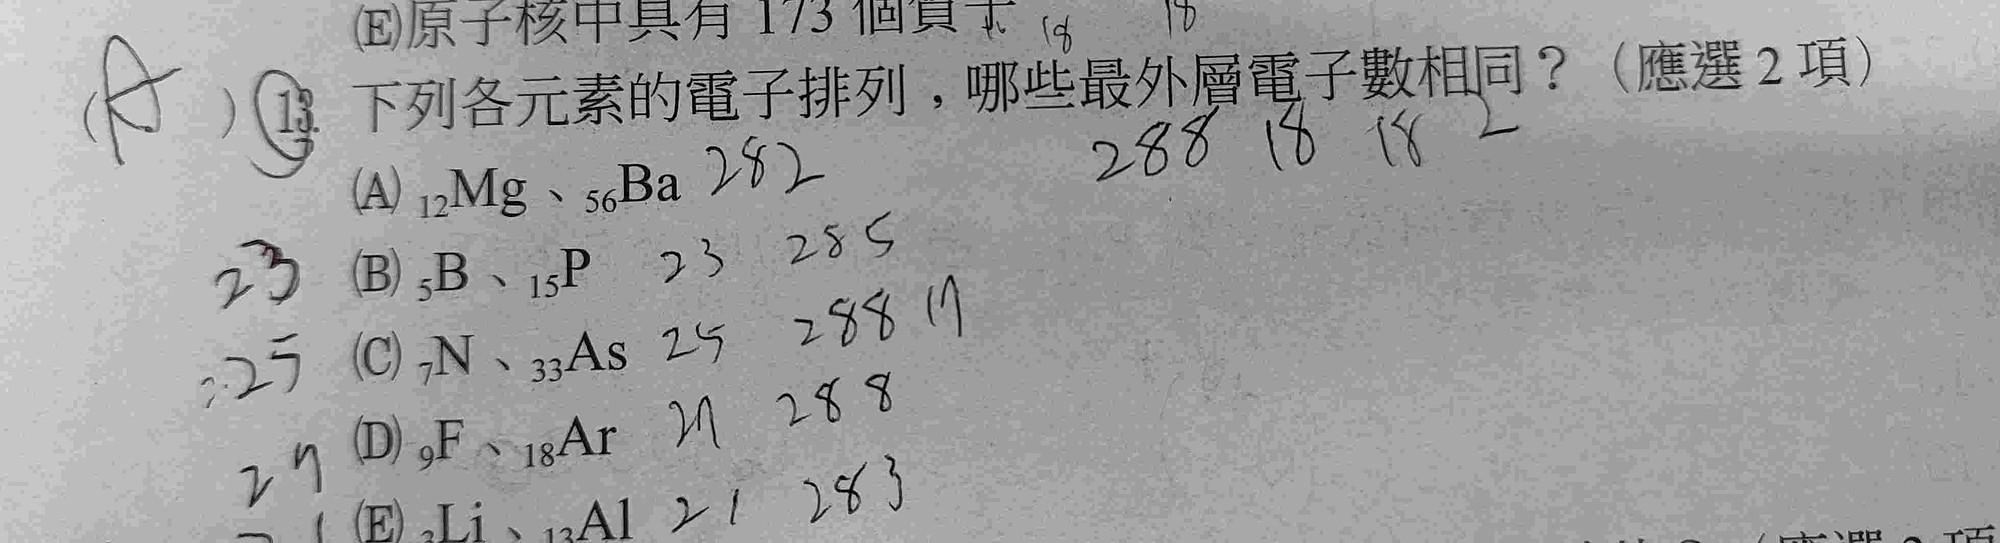 (E)原子核中具有 173 個質子 18 18
(A) 13. 下列各元素的電子排列，哪些最外層電子數相同？（應選 2 項）
(A) ₁₂Mg、₅₆Ba 282 288 18 18 2
23 (B) ₅B、₁₅P 23 285
25 (C) ₇N、₃₃As 25 288 17
27 (D) ₉F、₁₈Ar 27 288
21 (E) ₃Li、₁₃Al 21 283